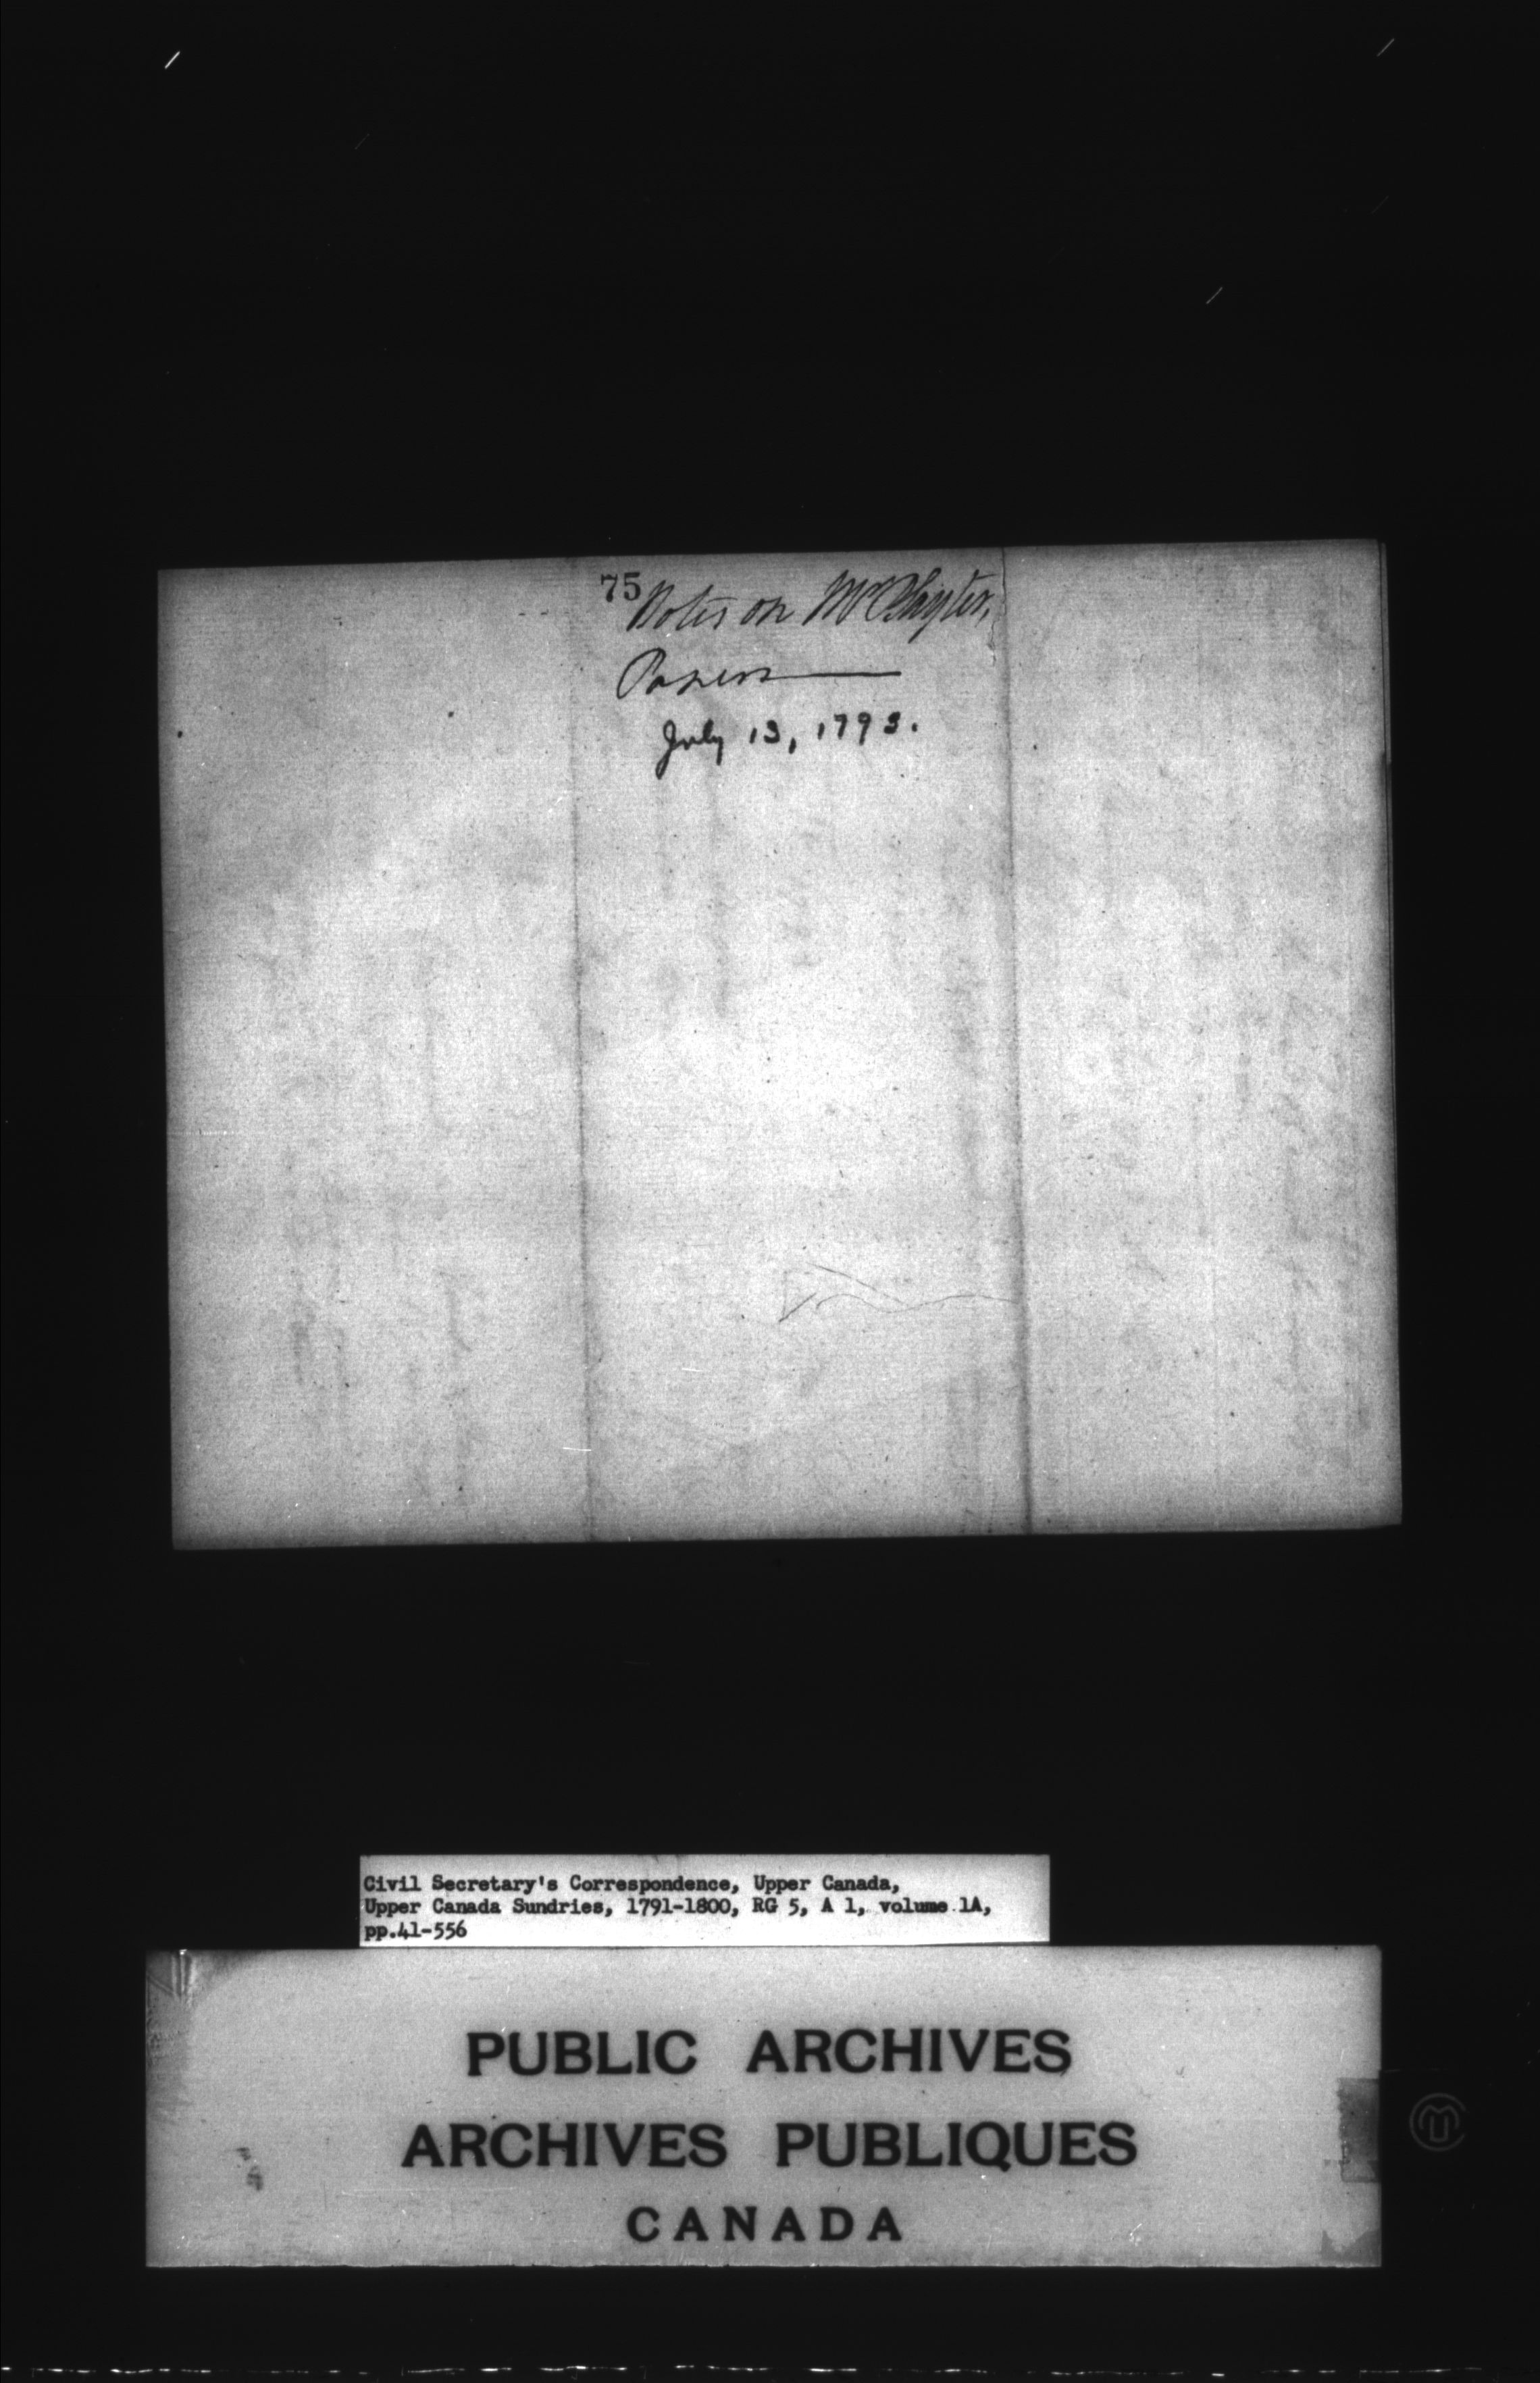 75
Notes on Mr
Papers
July 13, 1793.
Civil Secretary's Correspondence, Upper Canada,
Upper Canada Sundries, 1791-1800, RG 5, A 1, volume 1A,
pp.41-556
PUBLIC ARCHIVES
ARCHIVES PUBLIQUES
CANADA